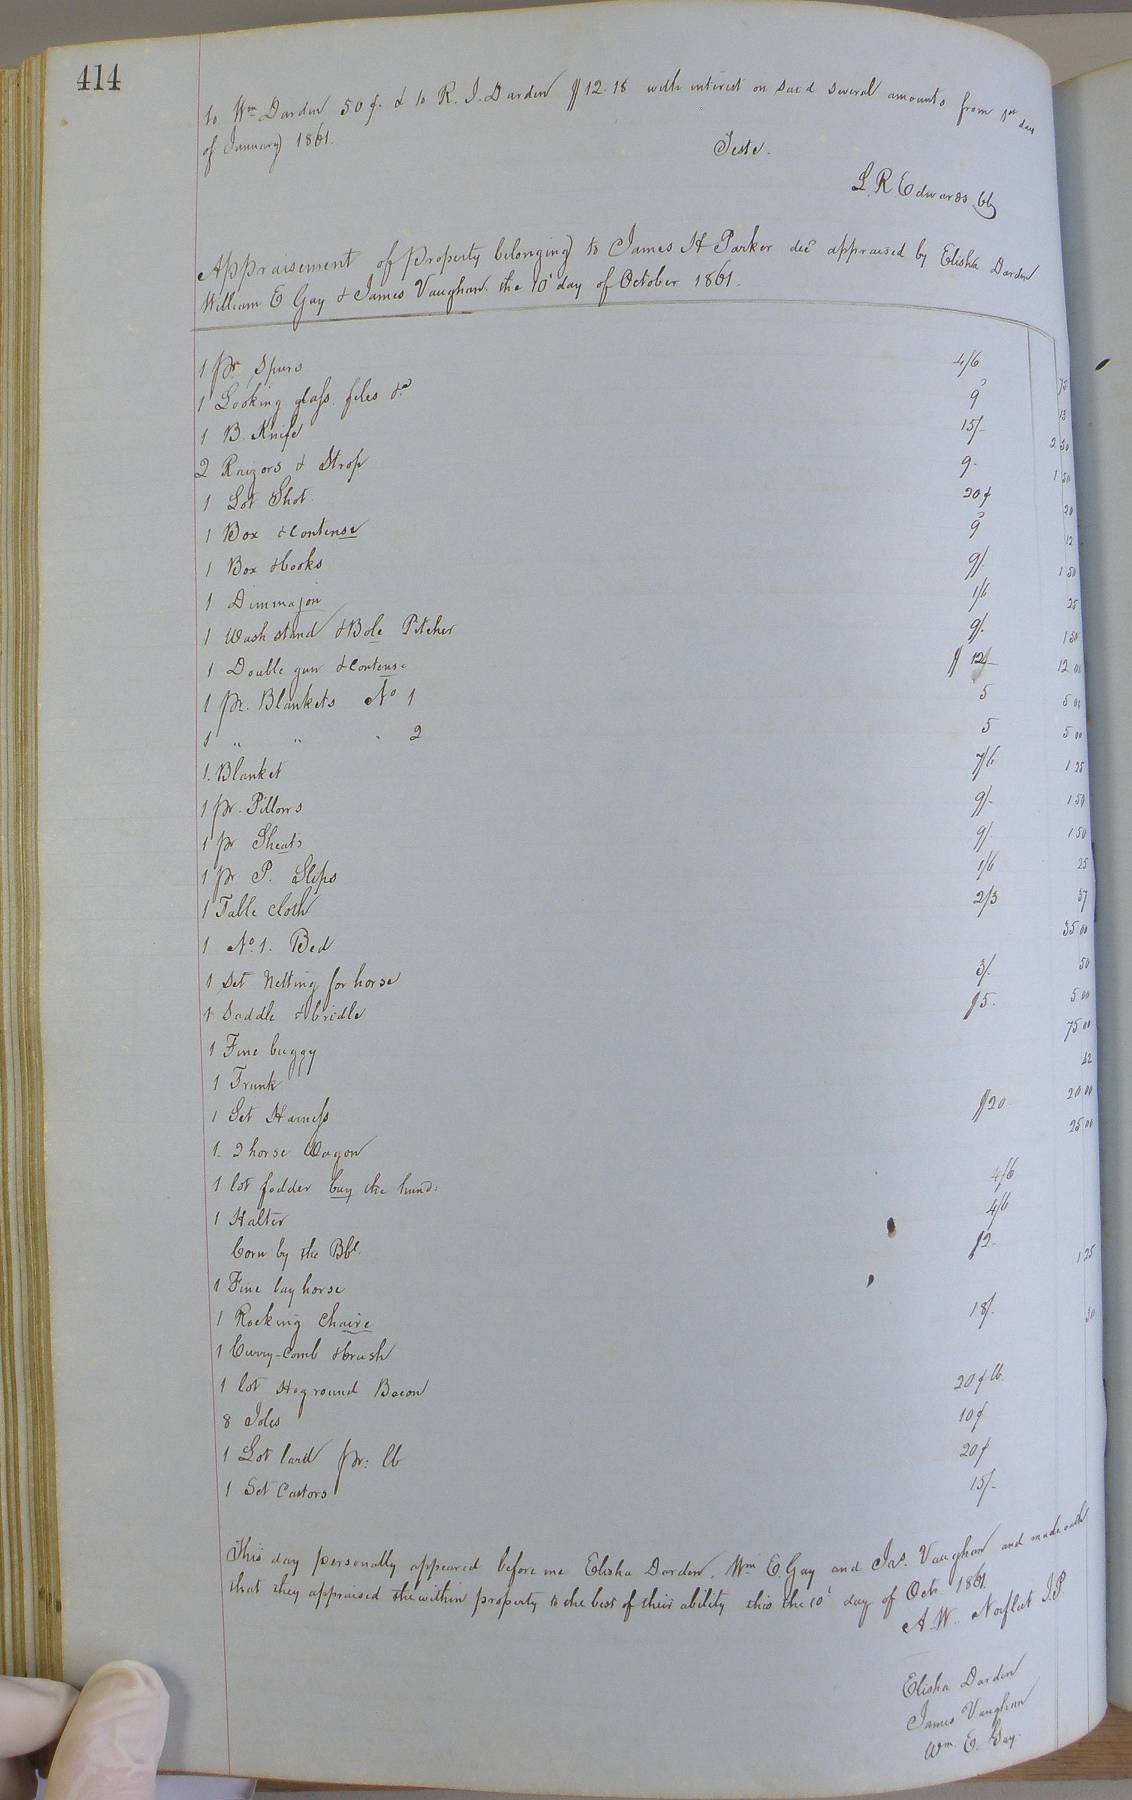 414
to Wm Darden 50 ¢. & to R. I. Darden $12.18 with interest on said several amounts from 1st day
of January 1861.
Teste.
L. R. Edwards Clk
Appraisement of Property belonging to James H Parker decd appraised by Elisha Darden
William E Gay & James Vaughan the 10t day of October 1861.
1 pr. Spurs 4/6 75
1 Looking glass. files &c 9d 13
1 B. Knife 15/- 2 50
2 Raizors & Strop 9. 1 50
1 Lot Shot 20¢ 20
1 Box & contense 9d 12
1 Box & books 9/. 1 50
1 Dimmajon 1/6 25
1 Wash stand & Bole Pitcher 9/. 1 50
1 Double gun & contense $12 12 00
1 pr. Blankets No 1 5 5 00
1 " " " 2 5 5 00
1. Blanket 7/6 1 25
1 pr. Pillows 9/- 1 50
1 pr Sheats 9/. 1 50
1 pr P. Slips 1/6 25
1 Table cloth 2/3 37
1 No. 1. Bed 35 00
1 Set Netting for horse 3/. 50
1 Saddle & bridle $5. 5 00
1 Fine buggy 75 00
1 Trunk 42
1 Set Harness $20 20 00
1. 2 horse Wagon 25 00
1 lot fodder buy the hund: 4/6
1 Halter 4/6
Corn by the Bbl. $2
1 Fine bay horse 125
1 Rocking Chaire 18/.
1 Curry-comb & brush 30
1 lot Hog round Bacon 20 ¢ lb.
8 Joles 10¢
1 Lot lard pr: lb 20¢
1 Set Castors 15/-
This day personally appeared before me Elisha Darden, Wm E. Gay and Jas. Vaughan and made oath
that they appraised the within property to the best of their ability this the 10t day of Octr 1861.
A. W. Norfleet J.P.
Elisha Darden
James Vaughan
Wm. E. Gay.